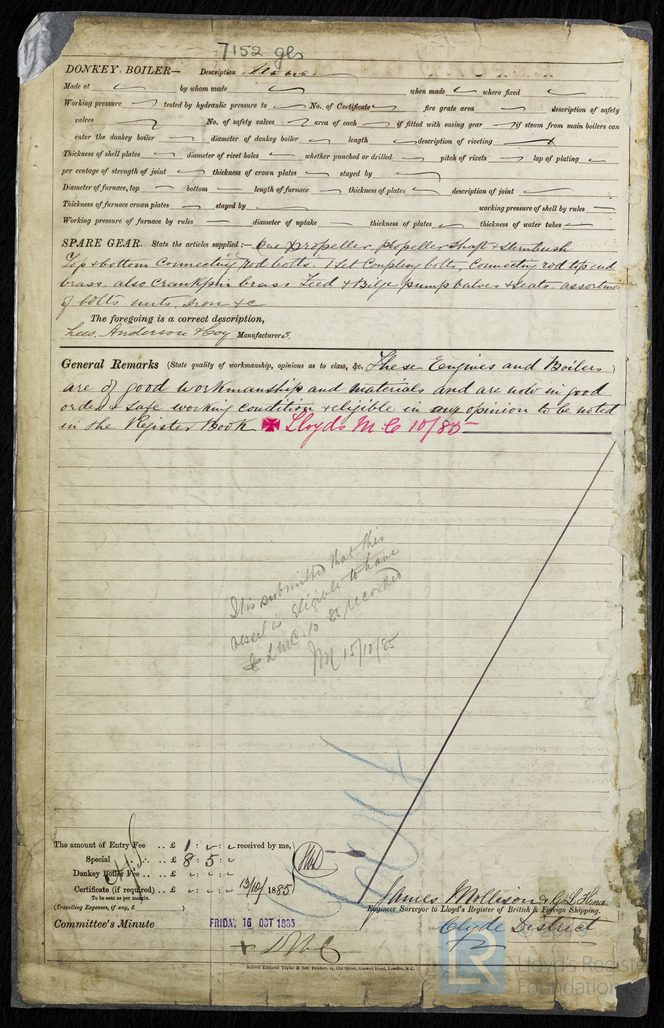 7152 gls
DONKEY BOILER— Description
Made at by whom made when made where fixed
Working pressure tested by hydraulic pressure to No. of Certificate fire grate area description of safety
valves No. of safety valves area of each if fitted with easing gear if steam from main boilers can
enter the donkey boiler diameter of donkey boiler length description of riveting
Thickness of shell plates diameter of rivet holes whether punched or drilled pitch of rivets lap of plating
per centage of strength of joint thickness of crown plates stayed by
Diameter of furnace, top bottom length of furnace thickness of plates description of joint
Thickness of furnace crown plates stayed by working pressure of shell by rules
Working pressure of furnace by rules diameter of uptake thickness of plates thickness of water tubes
SPARE GEAR. State the articles supplied:— One propeller, propeller shaft & Sternbush
Top & bottom Connecting rod bolts, 1 Set Coupling bolts, Connecting rod top end
brass, also Crankpin brass Feed & Bilge pump valves & Seats. assortment
of bolts nuts, Iron &c
The foregoing is a correct description,
Anderson & Coy Manufacturers.
General Remarks (State quality of workmanship, opinions as to class, &c. These Engines and Boilers
are of good workmanship and materials and are now in good
order & safe working condition & eligible in my opinion to be noted
in the Register Book ✠ Lloyds M.C 10/85
It is submitted that this
vessel is eligible to have
✠ LMC 10 85 recorded
15/10/85
The amount of Entry Fee .. £ 1 : received by me,
Special .. £ 8 : 5 :
Donkey Boiler Fee .. £
Certificate (if required) .. £ 13/10/1885
To be sent as per margin.
(Travelling Expenses, if any, £ )
James Mollison & G. L. Hind
Engineer Surveyor to Lloyd's Register of British & Foreign Shipping.
Committee's Minute FRIDAY 16 OCT 1885
Clyde District
+ LMC
Robert Edmund Taylor & Son Printers, 19, Old Street, Goswell Road, London, E.C.
LR
Lloyd's Register
Foundation